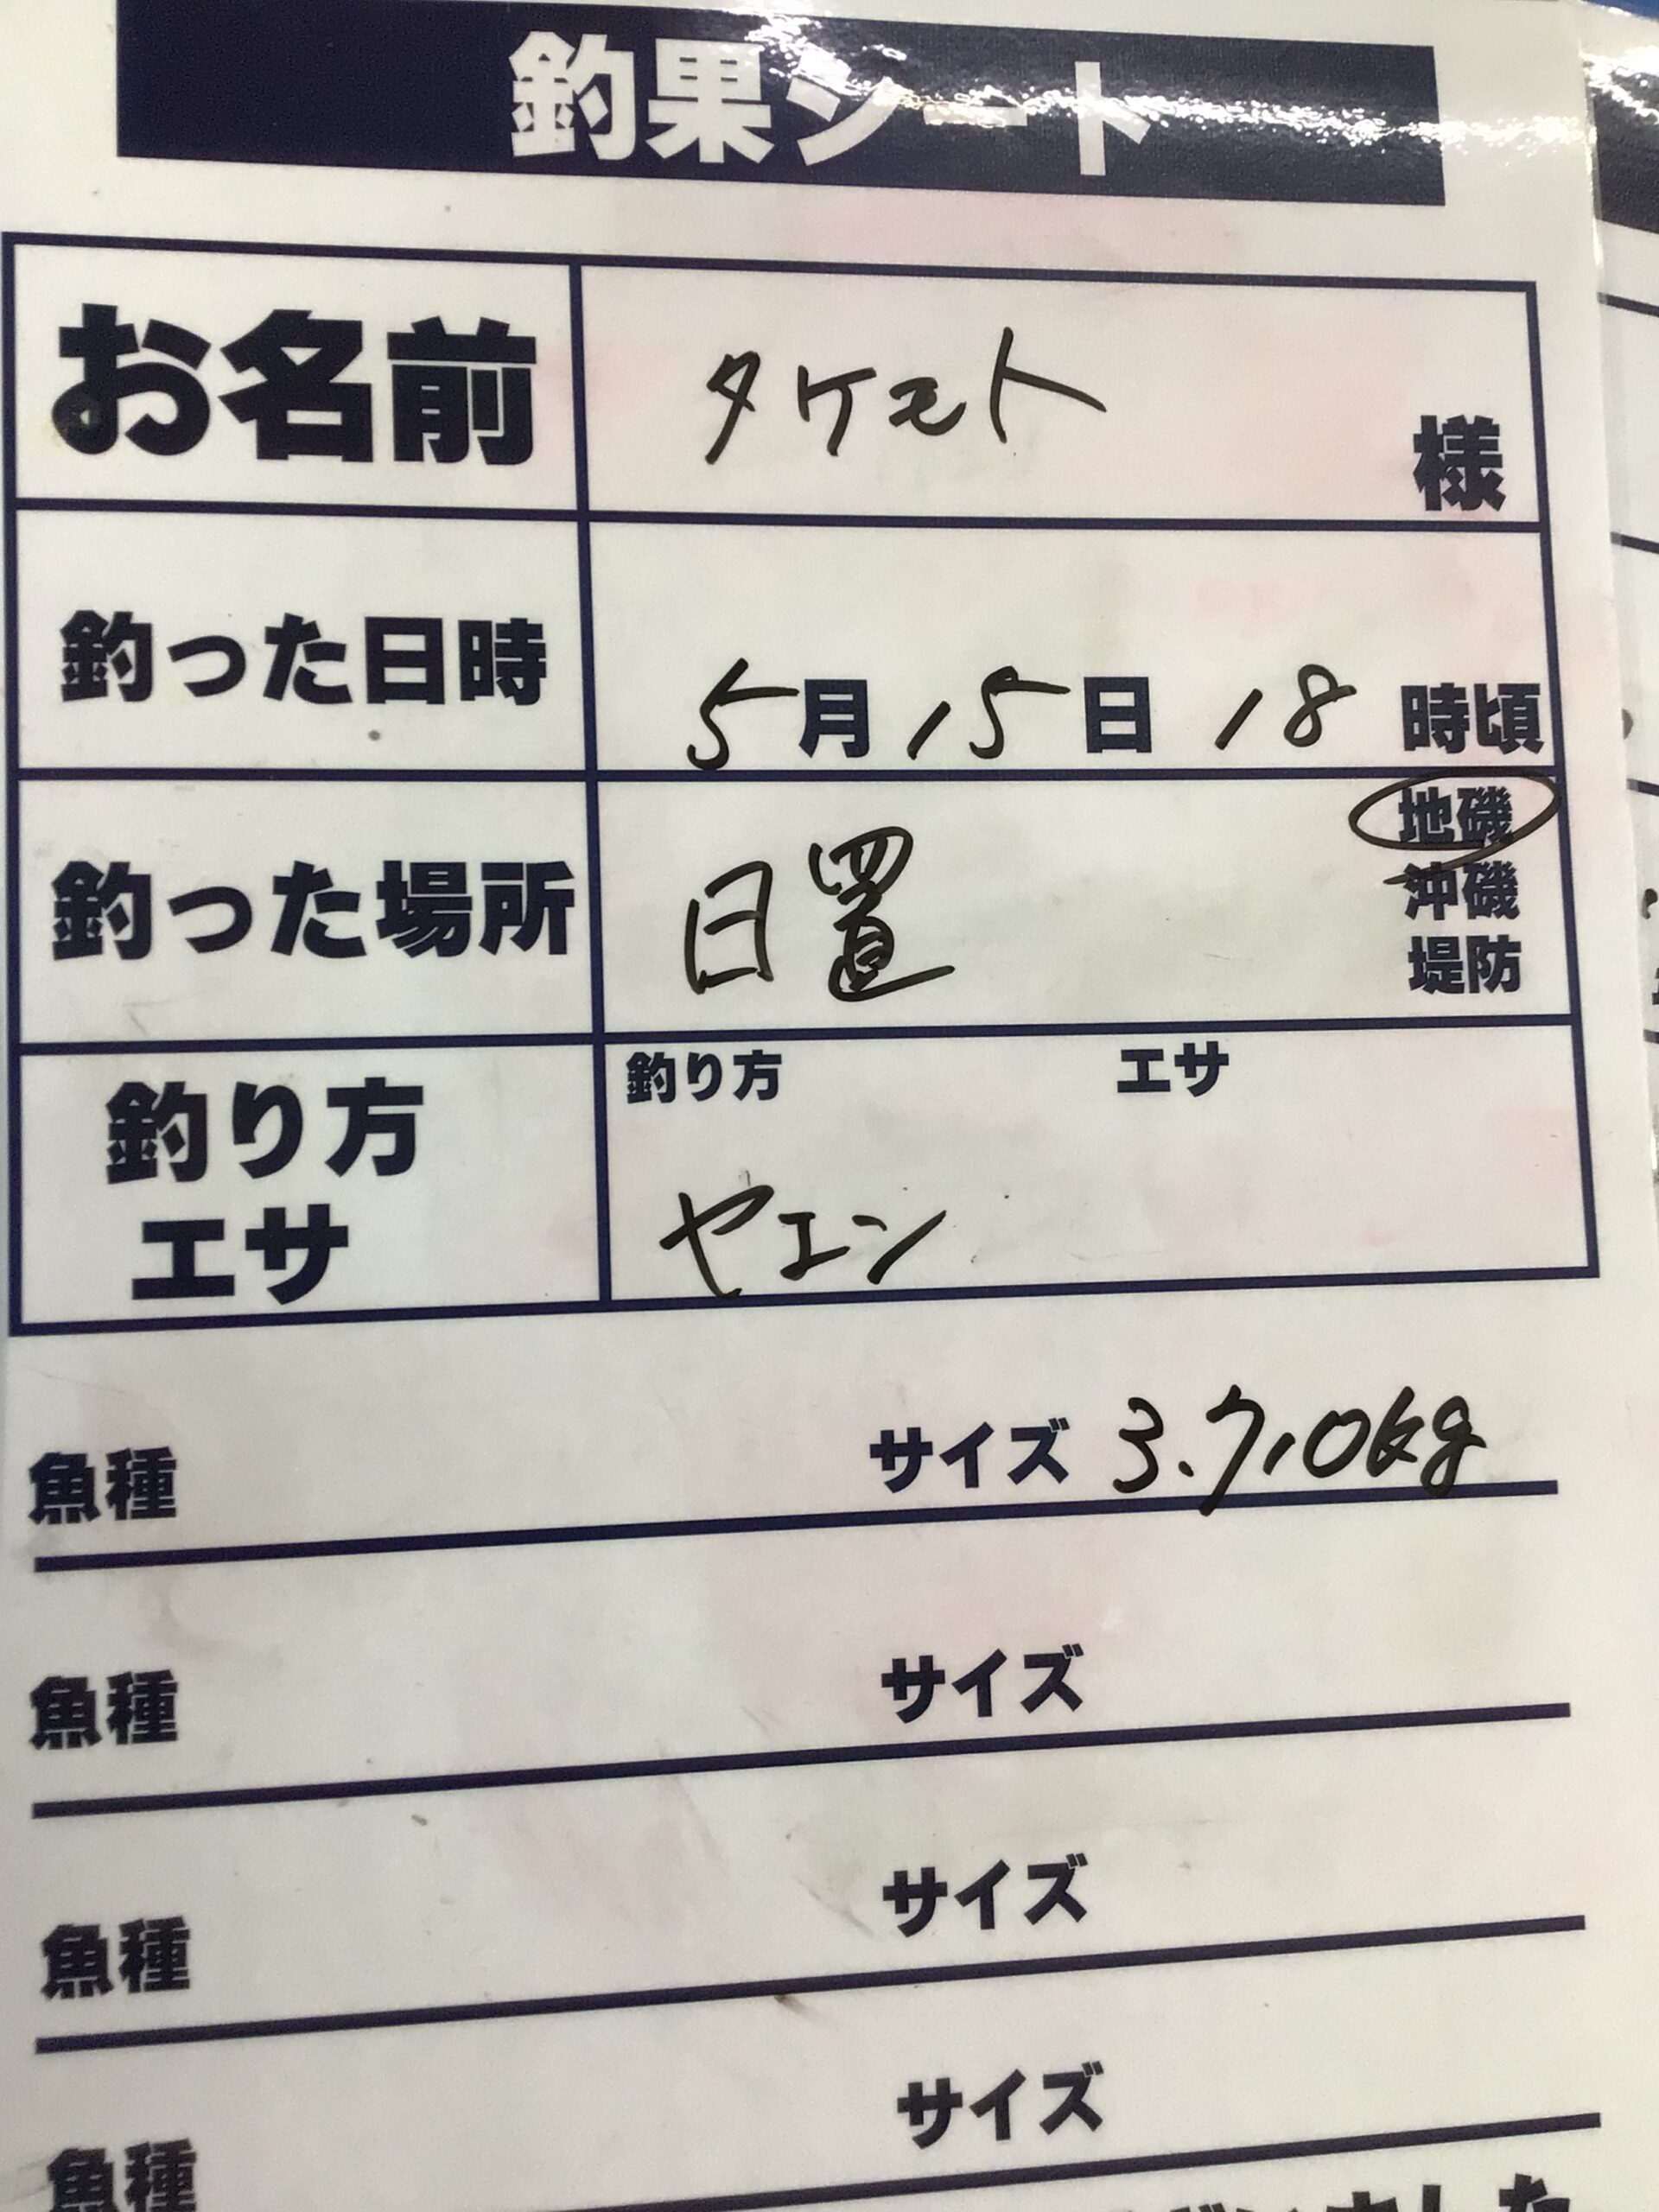 釣果シート
お名前 タケモト 様
釣った日時 5月15日 18時頃
釣った場所 日置 地磯
沖磯
堤防
釣り方 エサ
釣り方
エサ
ヤエン
魚種 サイズ 3.710kg
魚種 サイズ
魚種 サイズ
魚種 サイズ
ました